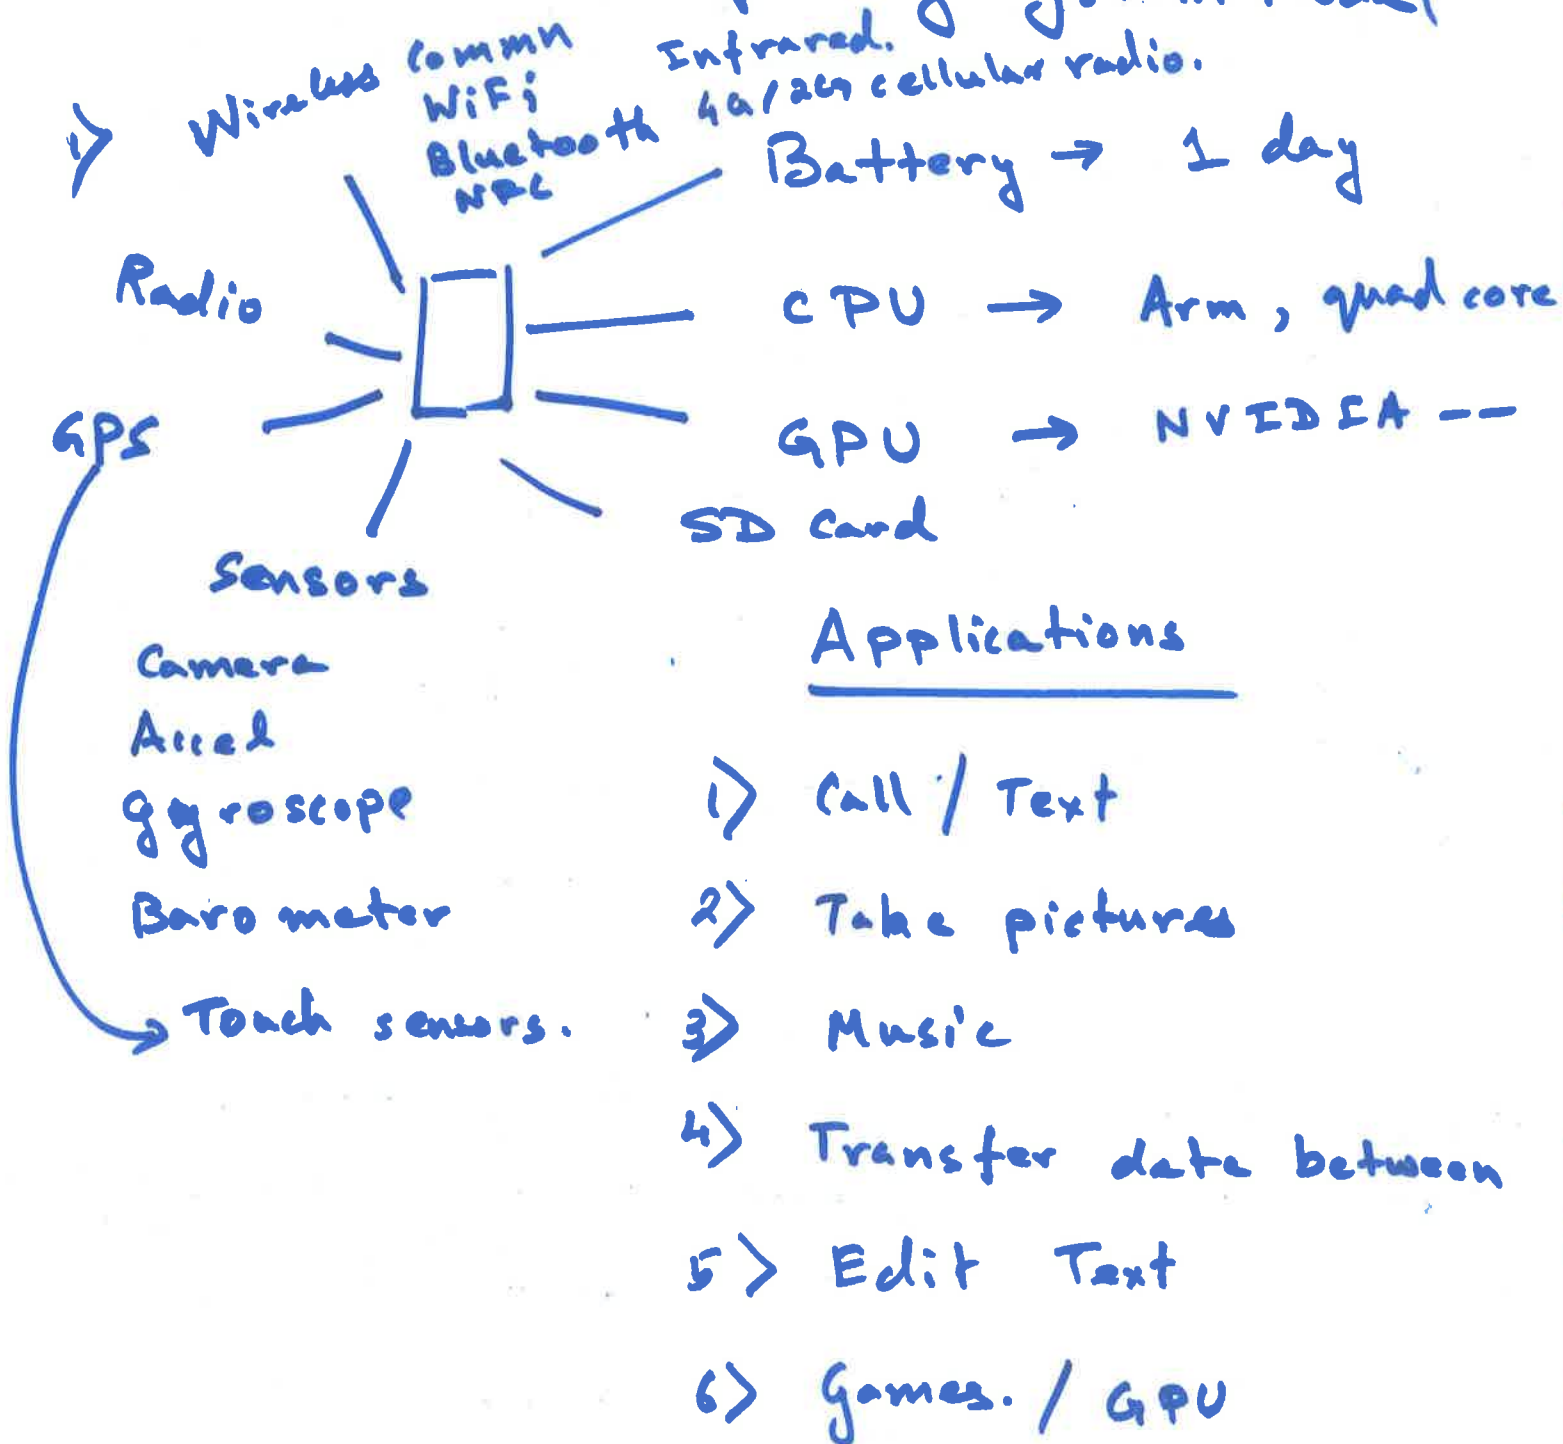 1) Wireless Commn Infrared.
WiFi 4G/2G cellular radio.
Bluetooth
NFC
Battery → 1 day
Radio
CPU → Arm, quad core
GPS
GPU → NVIDIA --
SD Card
Sensors
Camera
Accel
gyroscope
Barometer
Touch sensors.
Applications
1) Call / Text
2) Take pictures
3) Music
4) Transfer data between
5) Edit Text
6) Games. / GPU